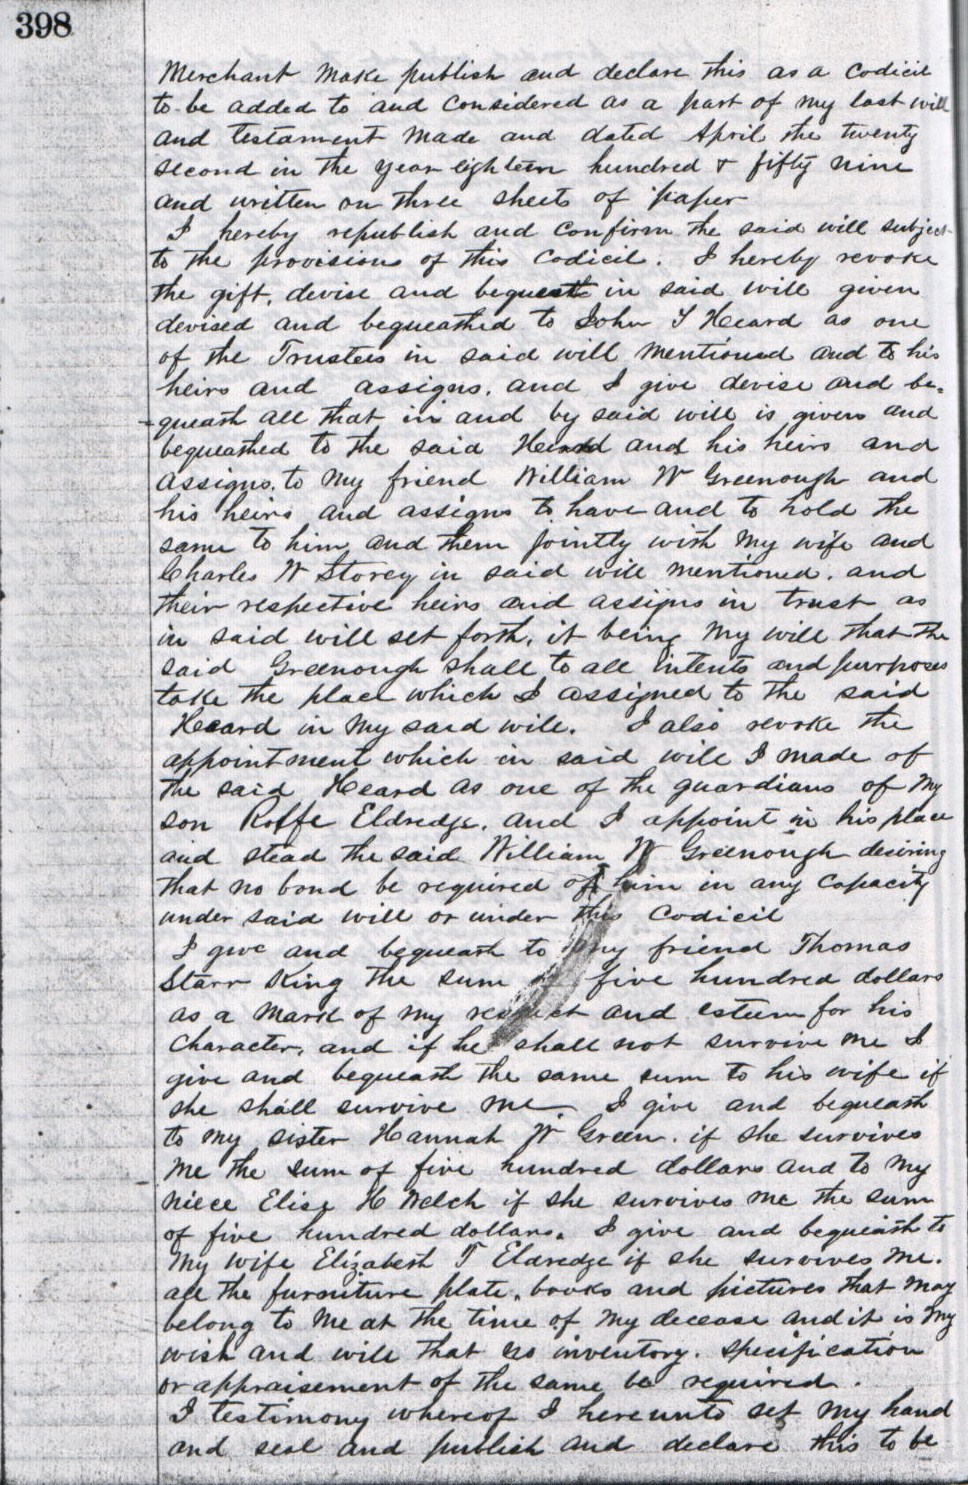 398
Merchant make publish and declare this as a codicil
to be added to and considered as a part of my last will
and testament made and dated April the twenty
second in the year eighteen hundred & fifty nine
and written on three sheets of paper
I hereby republish and confirm the said will subject
to the provisions of this codicil. I hereby revoke
the gift, devise and bequest in said will given
devised and bequeathed to John T Heard as one
of the Trustees in said will mentioned and to his
heirs and assigns, and I give devise and be-
queath all that in and by said will is given and
bequeathed to the said Heard and his heirs and
assigns, to my friend William W Greenough and
his heirs and assigns to have and to hold the
same to him and them jointly with my wife and
Charles W Storey in said will mentioned, and
their respective heirs and assigns in trust as
in said will set forth, it being my will that the
said Greenough shall to all intents and purposes
take the place which I assigned to the said
Heard in my said will. I also revoke the
appointment which in said will I made of
the said Heard as one of the guardians of my
son Roffe Eldredge, and I appoint in his place
and stead the said William W Greenough desiring
that no bond be required of him in any capacity
under said will or under this codicil
I give and bequeath to my friend Thomas
Starr King the sum of five hundred dollars
as a mark of my respect and esteem for his
character, and if he shall not survive me I
give and bequeath the same sum to his wife if
she shall survive me. I give and bequeath
to my sister Hannah W Green, if she survives
me the sum of five hundred dollars and to my
niece Elise H Welch if she survives me the sum
of five hundred dollars. I give and bequeath to
my wife Elizabeth T Eldredge if she survives me.
all the furniture plate, books and pictures that may
belong to me at the time of my decease and it is my
wish and will that no inventory. specification
or appraisement of the same be required.
I testimony whereof I hereunto set my hand
and seal and publish and declare this to be